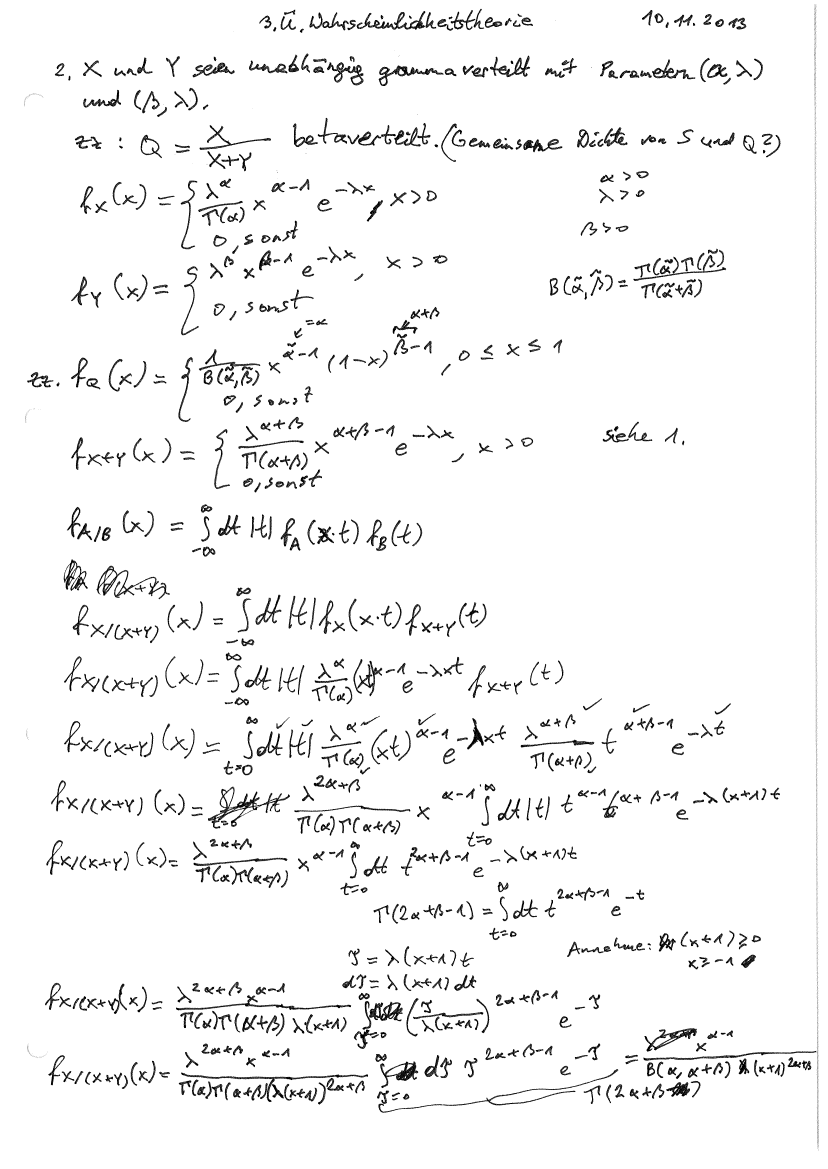 3. Ü. Wahrscheinlichkeitstheorie 10.11.2013
2, X und Y seien unabhängig grammaverteilt mit Parametern (α,λ)
und (β,λ).
zz : Q = X/(X+Y) betaverteilt. (Gemeinsame Dichte von S und Q?)
f_X(x) = { λ^α/Γ(α) x^(α-1) e^(-λx), x>0
0, sonst
α>0
λ>0
β>0
f_Y(x) = { λ^β x^(β-1) e^(-λx), x>0
0, sonst
B(α̃,β̃) = Γ(α̃)Γ(β̃)/Γ(α̃+β̃)
=α α+β
zz. f_Q(x) = { 1/B(α̃,β̃) x^(α̃-1) (1-x)^(β̃-1), 0 ≤ x ≤ 1
0, sonst
f_X+Y(x) = { λ^(α+β)/Γ(α+β) x^(α+β-1) e^(-λx), x>0 siehe 1.
0, sonst
f_A/B(x) = ∫_{-∞}^{∞} dt |t| f_A(x·t) f_B(t)
f_X/(X+Y)(x) = ∫_{-∞}^{∞} dt |t| f_X(x·t) f_X+Y(t)
f_X/(X+Y)(x) = ∫_{-∞}^{∞} dt |t| λ^α/Γ(α) (xt)^(α-1) e^(-λxt) f_X+Y(t)
f_X/(X+Y)(x) = ∫_{t=0}^{∞} dt |t| λ^α/Γ(α) (xt)^(α-1) e^(-λxt) λ^(α+β)/Γ(α+β) t^(α+β-1) e^(-λt)
f_X/(X+Y)(x) = λ^(2α+β)/(Γ(α)Γ(α+β)) x^(α-1) ∫_{t=0}^{∞} dt |t| t^(α-1+α+β-1) e^(-λ(x+1)t)
f_X/(X+Y)(x) = λ^(2α+β)/(Γ(α)Γ(α+β)) x^(α-1) ∫_{t=0}^{∞} dt t^(2α+β-1) e^(-λ(x+1)t)
Γ(2α+β-1) = ∫_{t=0}^{∞} dt t^(2α+β-1) e^(-t)
Annehme: (x+1) ≥ 0
x ≥ -1
J = λ(x+1)t
dJ = λ(x+1)dt
f_X/(X+Y)(x) = λ^(2α+β) x^(α-1)/(Γ(α)Γ(α+β) λ(x+1)) ∫_{J=0}^{∞} (J/(λ(x+1)))^(2α+β-1) e^(-J)
f_X/(X+Y)(x) = λ^(2α+β) x^(α-1)/(Γ(α)Γ(α+β)(λ(x+1))^(2α+β)) ∫_{J=0}^{∞} dJ J^(2α+β-1) e^(-J) = x^(α-1)/(B(α, α+β) (x+1)^(2α+β))
Γ(2α+β)